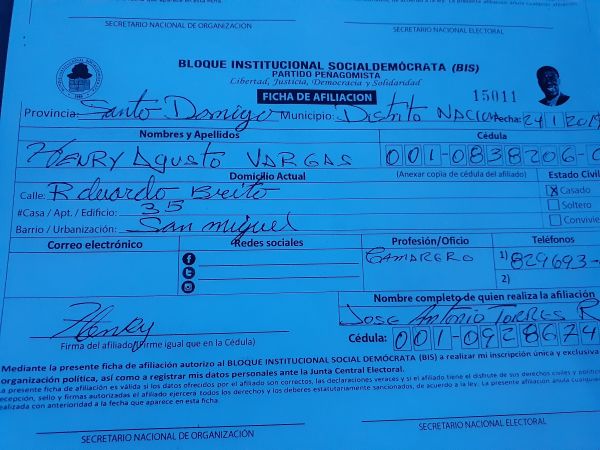 que aparece en esta ficha.
SECRETARIO NACIONAL DE ORGANIZACIÓN
SECRETARIO NACIONAL ELECTORAL
BLOQUE INSTITUCIONAL SOCIALDEMÓCRATA (BIS)
PARTIDO PEÑAGOMISTA
Libertad, Justicia, Democracia y Solidaridad
FICHA DE AFILIACION
15011
Provincia: Santo Domigo Municipio: Distrito Nacion Fecha: 24/1/2019
Nombres y Apellidos
Cédula
Henry Agusto VARGAS
001-0838206-
Domicilio Actual
(Anexar copia de cédula del afiliado)
Estado Civi
Calle: R duardo Breito
X Casado
#Casa / Apt. / Edificio: 35
Soltero
Barrio / Urbanización: San miguel
Convivie
Correo electrónico
Redes sociales
Profesión/Oficio
Teléfonos
CAMARERO
1) 829693-
2)
Nombre completo de quien realiza la afiliación
Jose Antonio Torres R
Henry
Firma del afiliado(firme igual que en la Cédula)
Cédula: 001-0928674
Mediante la presente ficha de afiliación autorizo al BLOQUE INSTITUCIONAL SOCIAL DEMÓCRATA (BIS) a realizar mi inscripción única y exclusiva
organización política, así como a registrar mis datos personales ante la Junta Central Electoral.
La presente ficha de afiliación es válida si los datos ofrecidos por el afiliado son correctos, las declaraciones veraces y si el afiliado tiene el disfrute de sus derechos civiles y polític
recepción, sello y firmas autorizadas el afiliado ejercerá todos los derechos y los deberes estatutariamente sancionados, de acuerdo a la ley. La presente afiliación anula cualquier
realizada con anterioridad a la fecha que aparece en esta ficha.
SECRETARIO NACIONAL DE ORGANIZACIÓN
SECRETARIO NACIONAL ELECTORAL